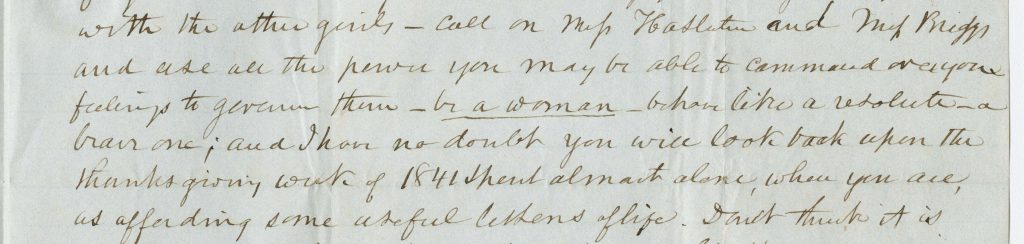 with the other girls – call on Miss Haslatine and Miss Briggs
and use all the power you may be able to command over your
feelings to govern them – be a woman – behave like a resolute – a
brave one; and I have no doubt you will look back upon the
thanksgiving week of 1841 spent almost alone, when you are,
as affording some useful lessons of life. Don't think it is